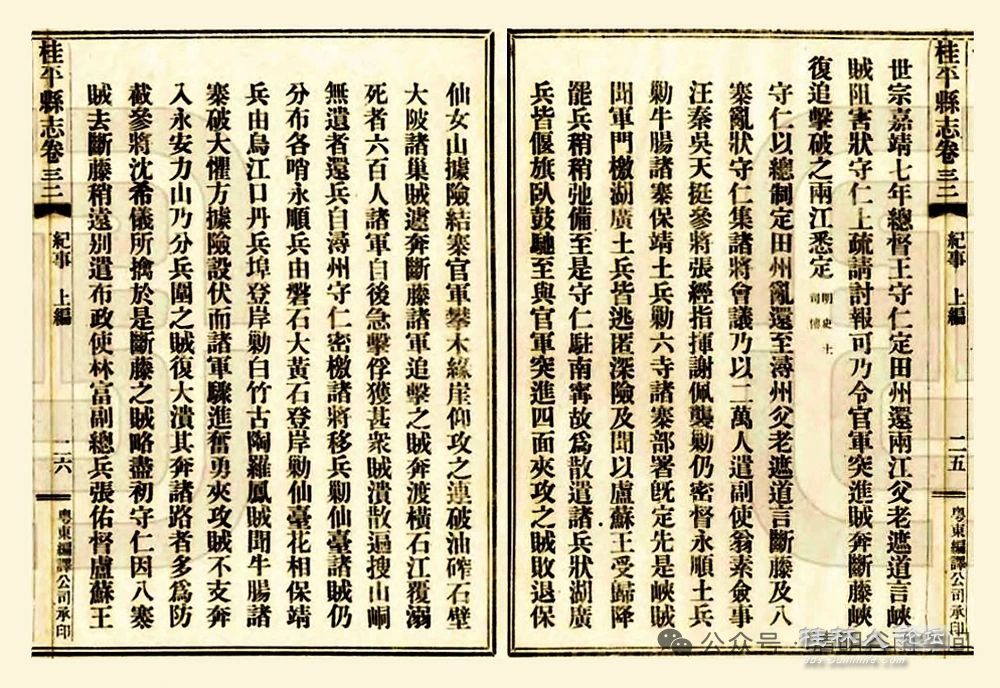 桂平縣志卷三二
紀事 上編
二五
粵東編譯公司承印
世宗嘉靖七年總督王守仁定田州還兩江父老遮道言峽
賊阻害狀守仁上疏請討報可乃令官軍突進賊奔斷藤峽
復追擊破之兩江悉定明史土司傳
守仁以總制定田州亂還至潯州父老遮道言斷藤及八
寨亂狀守仁集諸將會議乃以二萬人遣副使翁素僉事
汪秦吳天挺參將張經指揮謝佩襲勦仍密督永順土兵
勦牛腸諸寨保靖土兵勦六寺諸寨部署旣定先是峽賊
聞軍門檄湖廣土兵皆逃匿深險及聞以盧蘇王受歸降
罷兵稍稍弛備至是守仁駐南寧故爲散遣諸兵狀湖廣
兵皆偃旗臥鼓馳至與官軍突進四面夾攻之賊敗退保
仙女山據險結寨官軍攀木緣崖仰攻之連破油碎石壁
大陂諸巢賊遽奔斷藤諸軍追擊之賊奔渡橫石江覆溺
死者六百人諸軍自後急擊俘獲甚衆賊潰散遍搜山峒
無遺者還兵自潯州守仁密檄諸將移兵勦仙臺諸賊仍
分布各哨永順兵由磐石大黃石登岸勦仙臺花相保靖
兵由烏江口丹兵埠登岸勦白竹古陶羅鳳賊聞牛腸諸
寨破大懼方據險設伏而諸軍驟進奮勇夾攻賊不支奔
入永安力山乃分兵圍之賊復大潰其奔諸路者多爲防
截參將沈希儀所擒於是斷藤之賊略盡初守仁因八寨
賊去斷藤稍遠別遣布政使林富副總兵張佑督盧蘇王
桂平縣志卷三二
紀事 上編
二六
粵東編譯公司承印
公众号
桂林人论坛
bbs.guilinlife.com